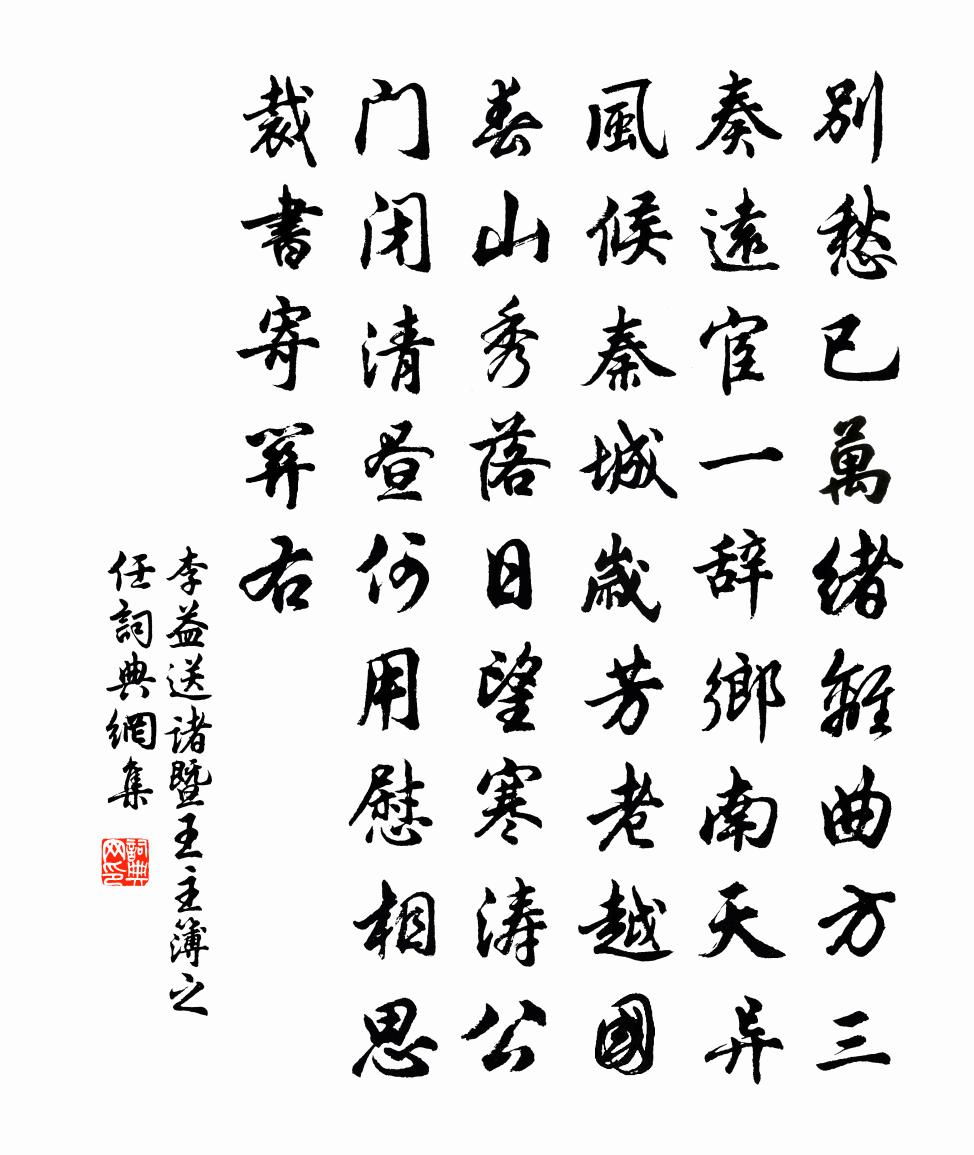 別愁已萬緒離曲方三
奏遠宦一辞鄉南天异
風候秦城歲芳老越國
春山秀落日望寒濤公
门闭清昼何用慰相思
裁書寄關右
李益送诸暨王主簿之
任詞典網集
詞典
网印